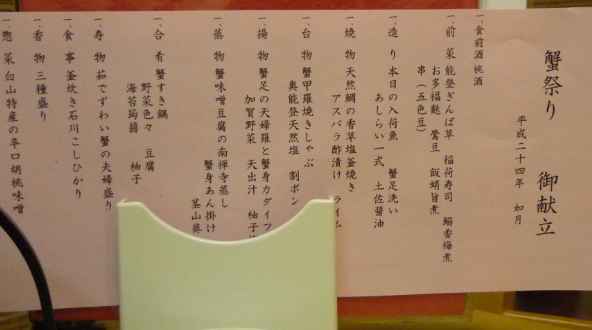 蟹祭り 御献立
平成二十四年 如月
一、食前酒 桃酒
一、前菜 能登ぎんば草 稲荷寿司 鰯香梅煮
お多福豆 鶯豆 飯蛸旨煮
串(五色豆)
一、造り 本日の入荷魚 蟹足洗い
あしらい一式 土佐醤油
一、焼物 天然鯛の香草塩釜焼き
アスパラ酢漬け ライム
一、台物 蟹甲羅焼きしゃぶ
奥能登天然塩 割ポン
一、揚物 蟹足の天婦羅と蟹身カダイフ
加賀野菜 天出汁 柚子
一、蒸物 蟹味噌豆腐の南禅寺蒸し
蟹身あん掛け
茎山葵
一、合肴 蟹すき鍋
野菜色々 豆腐
海苔蒟蒻 柚子
一、寿物 茹でずわい蟹の夫婦盛り
一、食事 釜炊き石川こしひかり
一、香物 三種盛り
一、惣菜 白山特産の辛口胡桃味噌